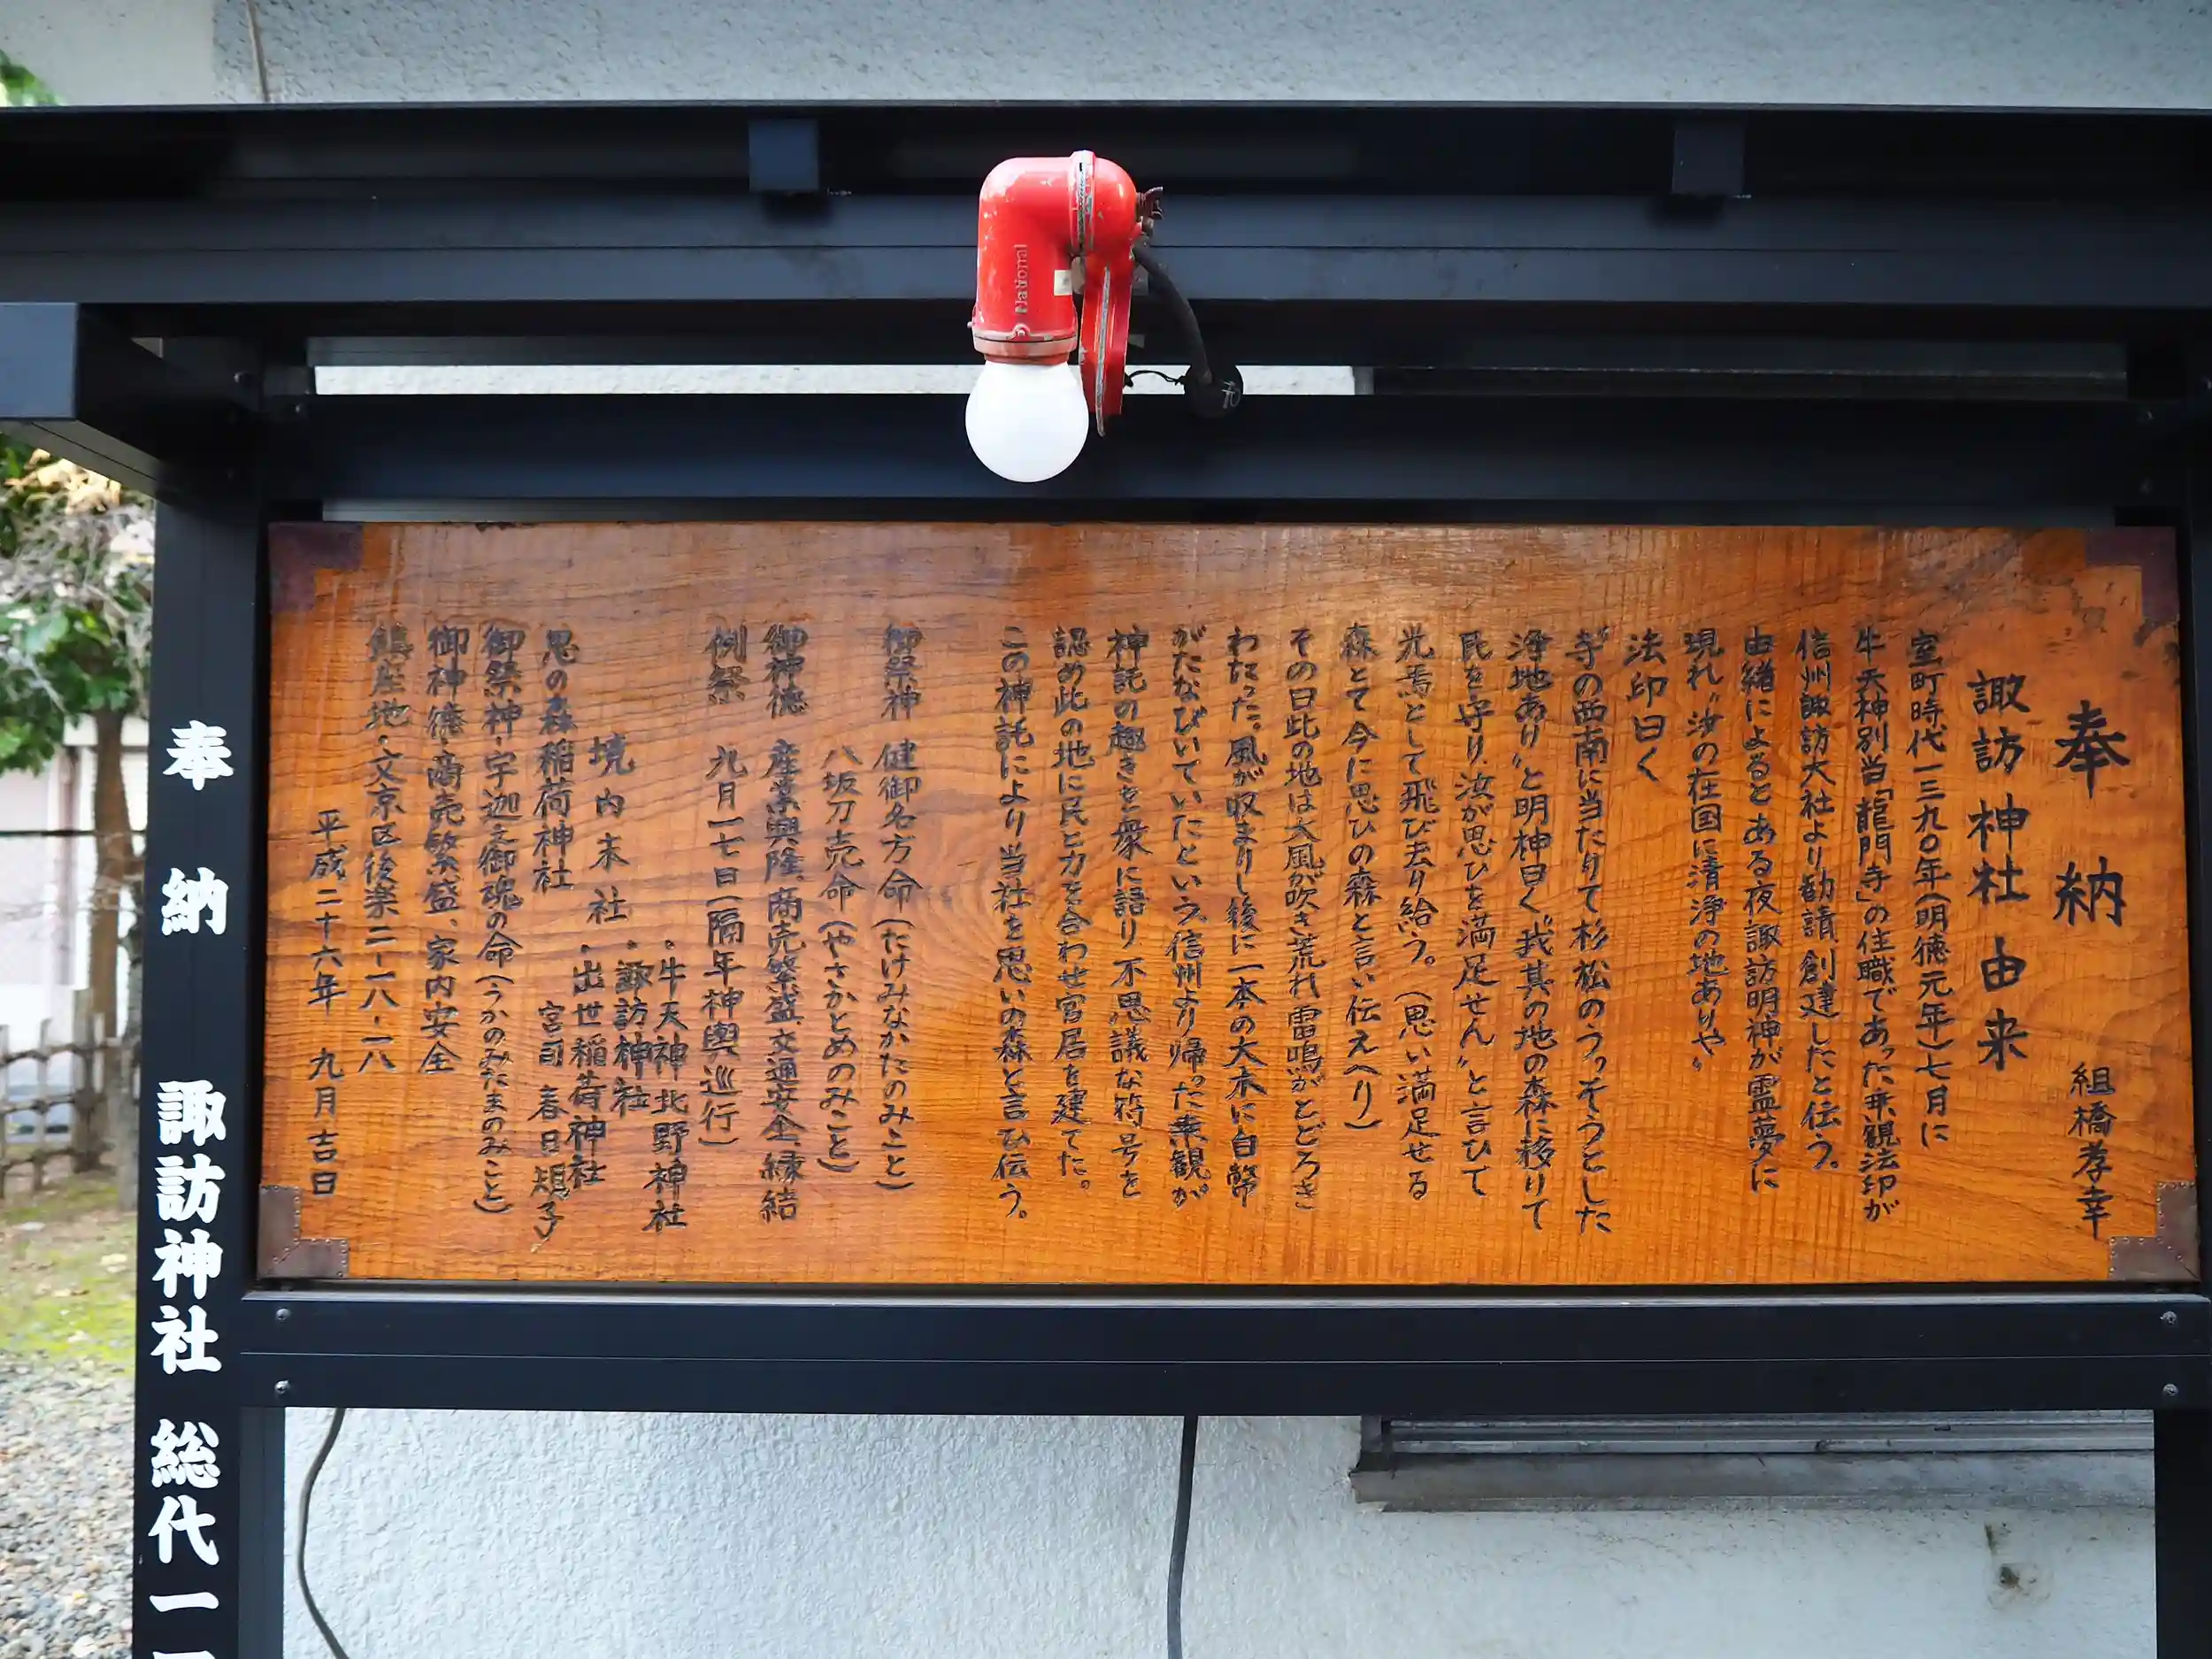 奉納
組橋孝幸
諏訪神社由来
室町時代一三九〇年(明徳元年)七月に
牛天神別当「龍門寺」の住職であった乗観法印が
信州諏訪大社より勧請、創建したと伝う。
由緒によるとある夜諏訪明神が霊夢に
現れ〝汝の在国に清浄の地ありや〟
法印曰く
寺の西南に当たりて杉松のうっそうとした
浄地あり〟と明神曰く〝我其の地の森に移りて
民を守り、汝が思ひを満足せん〟と言ひて
光焉として飛び去り給う。(思い満足せる
森とて今に思ひの森と言い伝えへり)
その日此の地は大風が吹き荒れ雷鳴がとどろき
わたった。風が収まりし後に一本の大木に白幣
がたなびいていたという。信州より帰った乗観が
神託の趣きを衆に語り、不思議な符号を
認め此の地に民と力を合わせ宮居を建てた。
この神託により当社を思いの森と言ひ伝う。
御祭神 健御名方命(たけみなかたのみこと)
八坂刀売命(やさかとめのみこと)
御神徳 産業興隆、商売繁盛、交通安全、縁結
例祭 九月二七日(隔年神輿巡行)
・牛天神北野神社
・諏訪神社
境内末社・出世稲荷神社
思の森稲荷神社 宮司 春日規子
御祭神・宇迦之御魂の命(うかのみたまのみこと)
御神徳・商売繁盛、家内安全
鎮座地・文京区後楽二-一八-一八
平成二十六年 九月吉日
奉納 諏訪神社 総代一
National